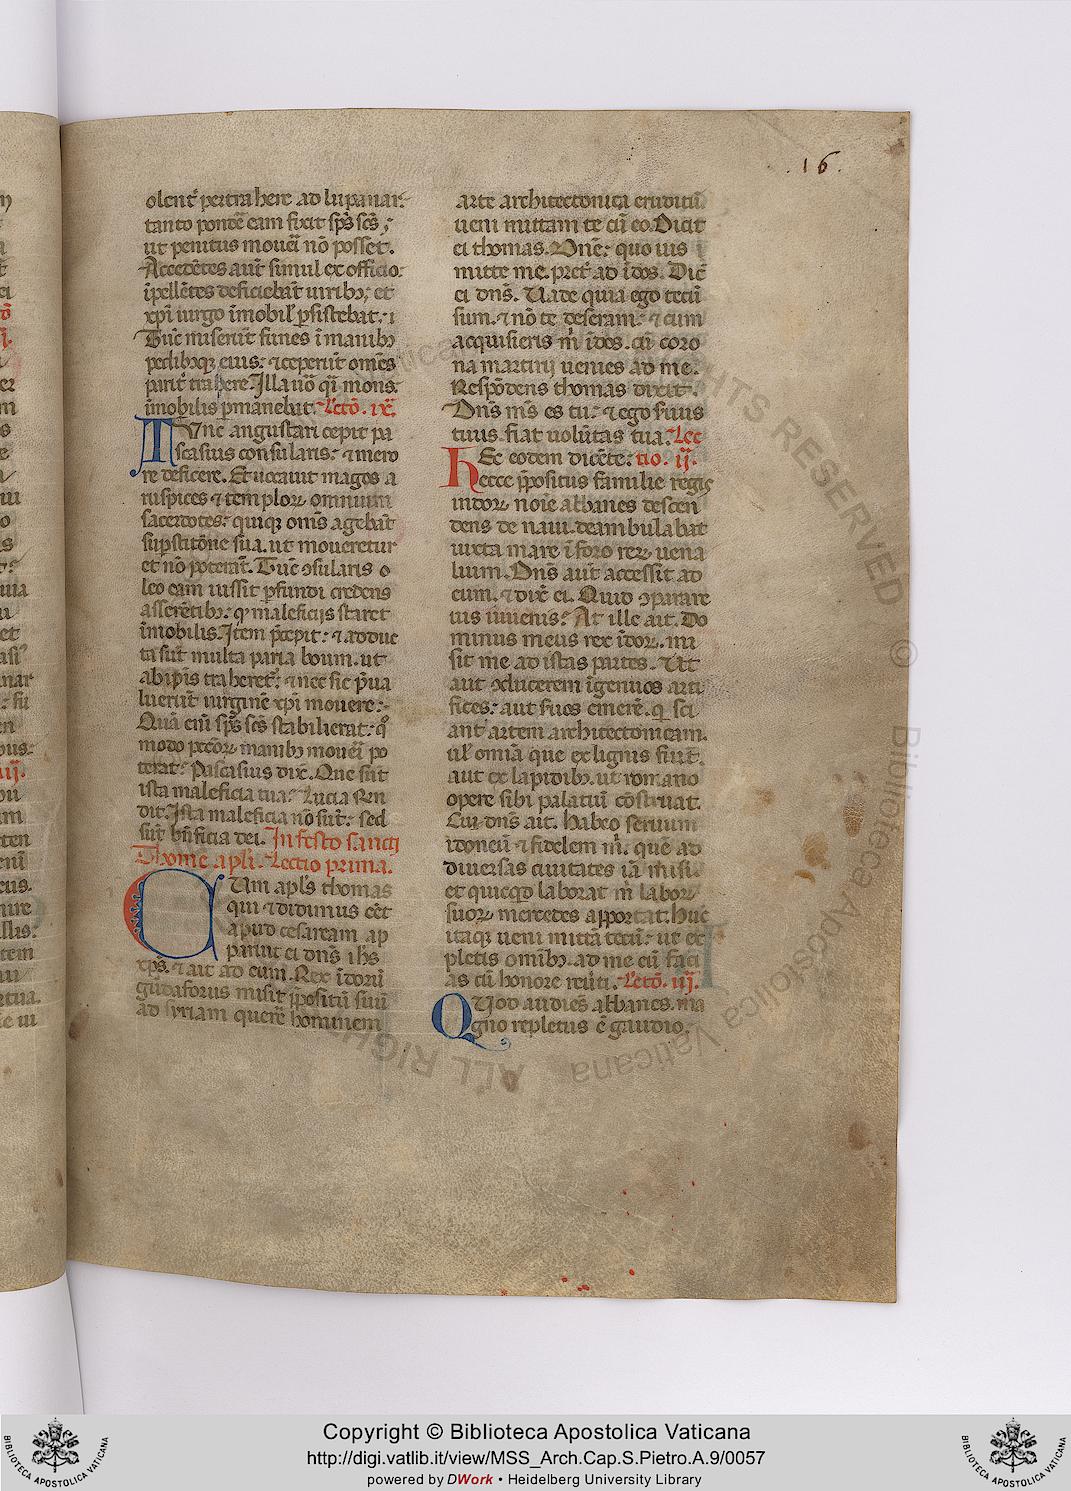 .16.
olent᷑ pertrahere ad lupanar.
tanto pondē eam fixit sp̄s sc̄s,
ut penitus mouei᷑ nō posset.
Accedētes aut̄ simul ex officio
īpellētes deficiebāt uiribꝫ; et
xp̄i uirgo īmobil᷑ ꝑsistebat.
Tūc miserūt funes ī manibꝫ
pedibꝫqꝫ eius: ⁊ ceperūt om̄es
parit᷑ trahere. Illa u᷑o q᷑i mons
īmobilis ꝑmanebat. Lectō. ix.
Tunc angustari cepit pa
scasius consularis: ⁊ mero
re deficere. Et uocauit magos a
ruspices ⁊ temploꝝ omnium
sacerdotes: quiqꝫ om̄s agebāt
suꝑstitōne sua. ut moueretur
et nō poterat. Tūc ꝯsularis o
leo eam iussit ꝑfundi credens
asserētibꝫ: qꝫ maleficijs staret
īmobilis. Item p̄cepit: ⁊ addue
ta sūt multa paria boum. ut
ab ip̄is traheret᷑: ⁊ nec sic p̄ua
luerūt uirginē xp̄i mouere.
Quā eni᷑ sp̄s sc̄s stabilierat: qͦ
modo pctōꝝ manibꝫ mouei᷑ po
terat: Pascasius dix̄. Que sūt
ista maleficia tua: Lucia Rn̄
dit. Ista maleficia nō sūt: sed
sūt bn̄ficia dei. In festo sancti
Thome apl̄i. Lectio prima.
Cum apl̄s thomas
qui ⁊ didimus eēt
apud cesaream ap
paruit ei dn̄s ih̄s
xp̄s. ⁊ ait ad eum. Rex īdoꝝ
gūdaforus misit p̄positū suū
ad syriam querē hominem
arte architectonica eruditū
ueni mittam te cū eo. Dicit
ei thomas. Dn̄e: quo uis
mitte me. pret᷑ ad īdos. Dic̄
ei dn̄s. Uade quia ego tecū
sum. ⁊ nō te deseram: ⁊ cum
acquisieris m̄ īdos. cū coro
na martirij uenies ad me.
Respōdens thomas dixit.
Dn̄s m̄s es tu: ⁊ ego suus
tuus. fiat uolūtas tua. Lec
Hec eodem dicēte: tio. ij.
ecce p̄positus familie regis
indoꝝ noīe abbanes descen
dens de naui. deambulabat
iuxta mare ī foro reꝝ uena
lium. Dn̄s aut̄ accessit ad
eum. ⁊ dix̄ ei. Quid ꝯparare
uis iuuenis: At ille ait. Do
minus meus rex īdoꝝ. mi
sit me ad istas partes. Ut
aut ꝯducerem īgenuos arti
fices: aut suos emerē. q̄ sci
ant artem architectonicam.
ul᷑ omīa que ex lignis fiūt.
aut ex lapidibꝫ. ut romano
opere sibi palatiū cōstruat.
Cui dn̄s ait. habeo seruum
idoneū ⁊ fidelem m̄. quē ad
diuersas ciuitates
et quicqd laborat m̄ laboꝝ
suoꝝ mercedes apportat: Huc
itaqꝫ ueni mittā tecū: ut ex
pletis omībꝫ. ad me cū faci
as cū honore reūti. Lectō. iij.
Quod audiēs abbanes. ma
gno repletus ē gaudio.
ALL RIGHTS RESERVED © Biblioteca Apostolica Vaticana
Copyright © Biblioteca Apostolica Vaticana
http://digi.vatlib.it/view/MSS_Arch.Cap.S.Pietro.A.9/0057
powered by DWork • Heidelberg University Library
BIBLIOTECA APOSTOLICA VATICANA
BIBLIOTECA APOSTOLICA VATICANA